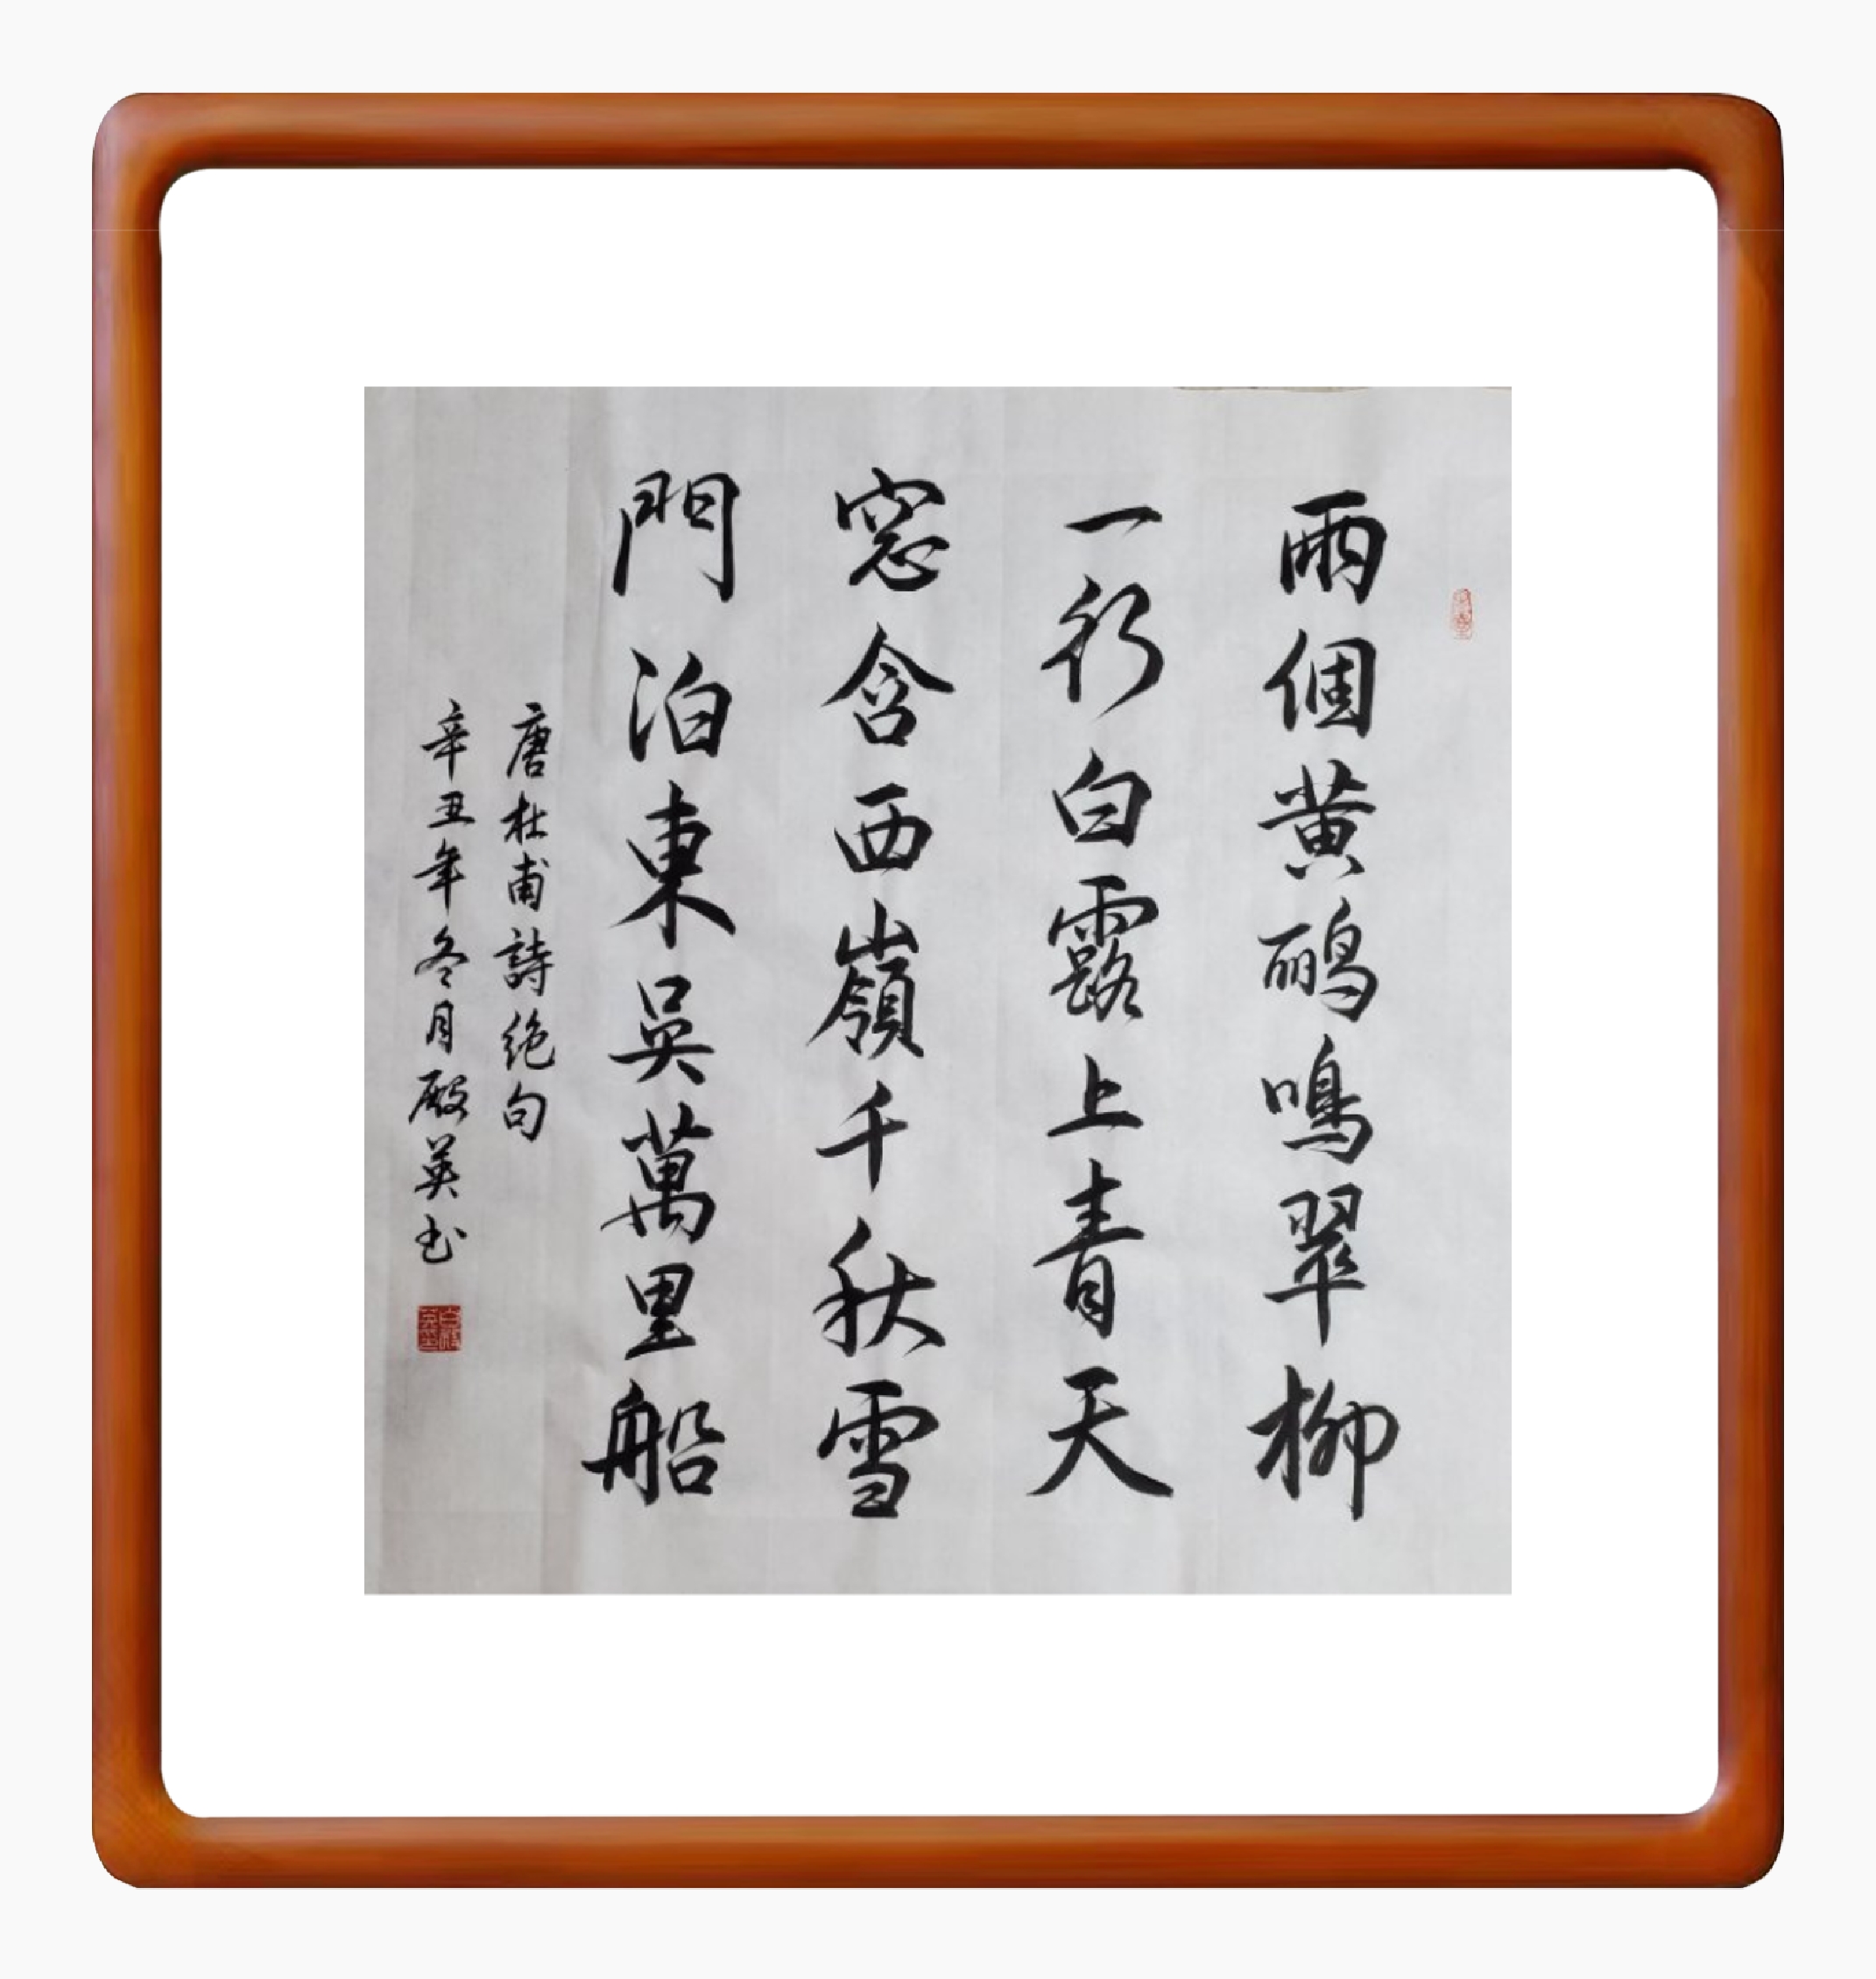 兩個黄鹂鳴翠柳
一行白露上青天
窓含西嶺千秋雪
門泊東吳萬里船
唐杜甫詩绝句
辛丑年冬月殿英书